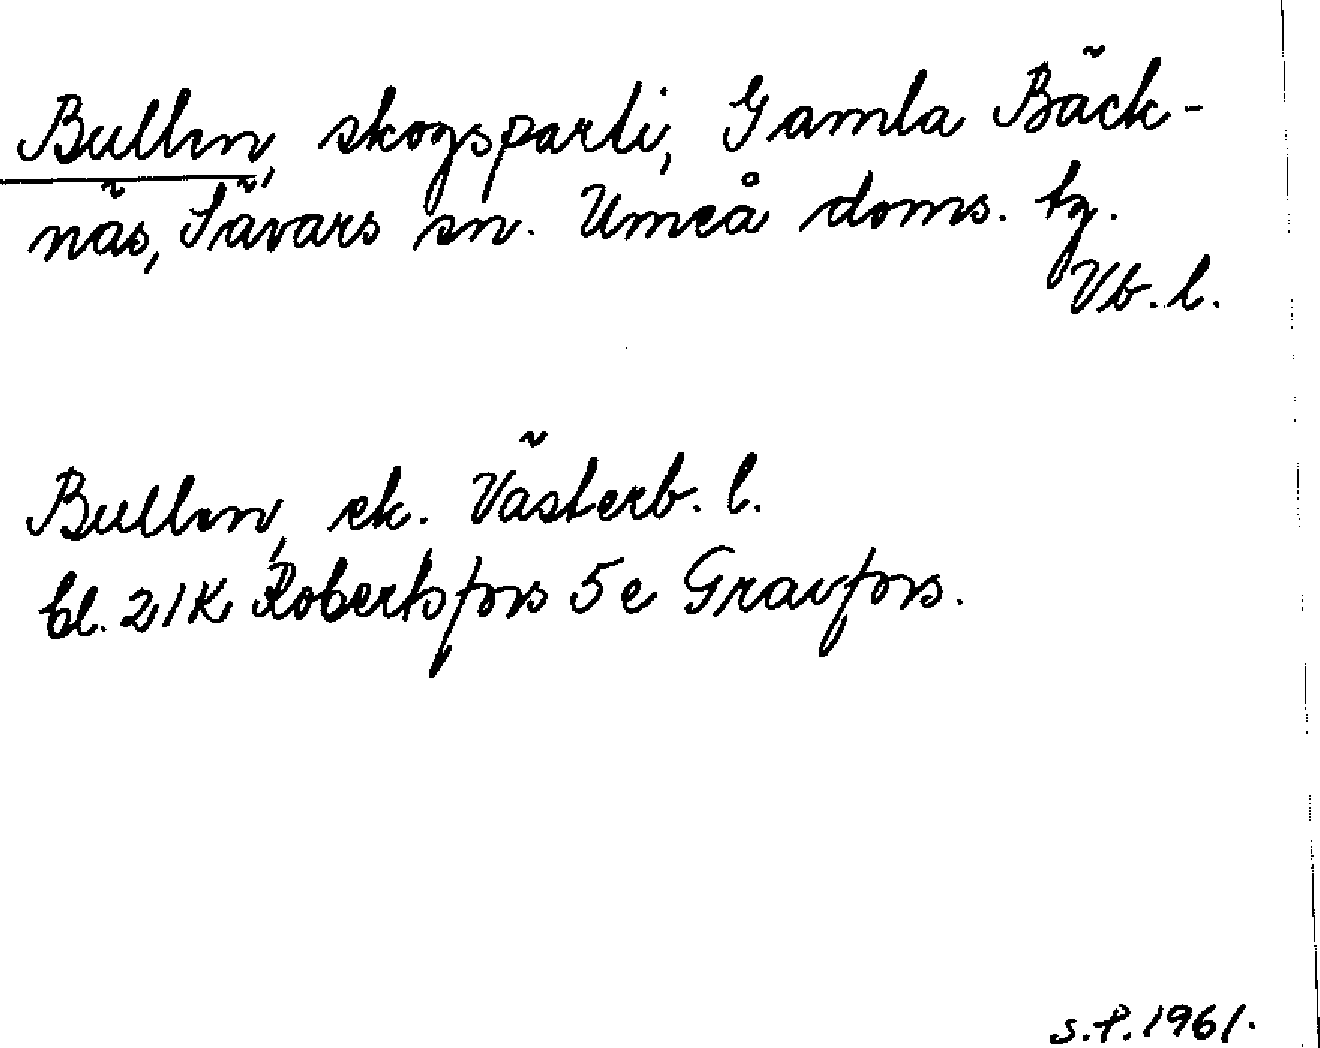 Bullen, skogsparti, Gamla Bäck-
näs, Sävars sn. Umeå doms. tg.
Vb. l.
Bullen, ek. Västerb. l.
bl. 21K Robertsfors 5e Gravfors.
S.P. 1961.